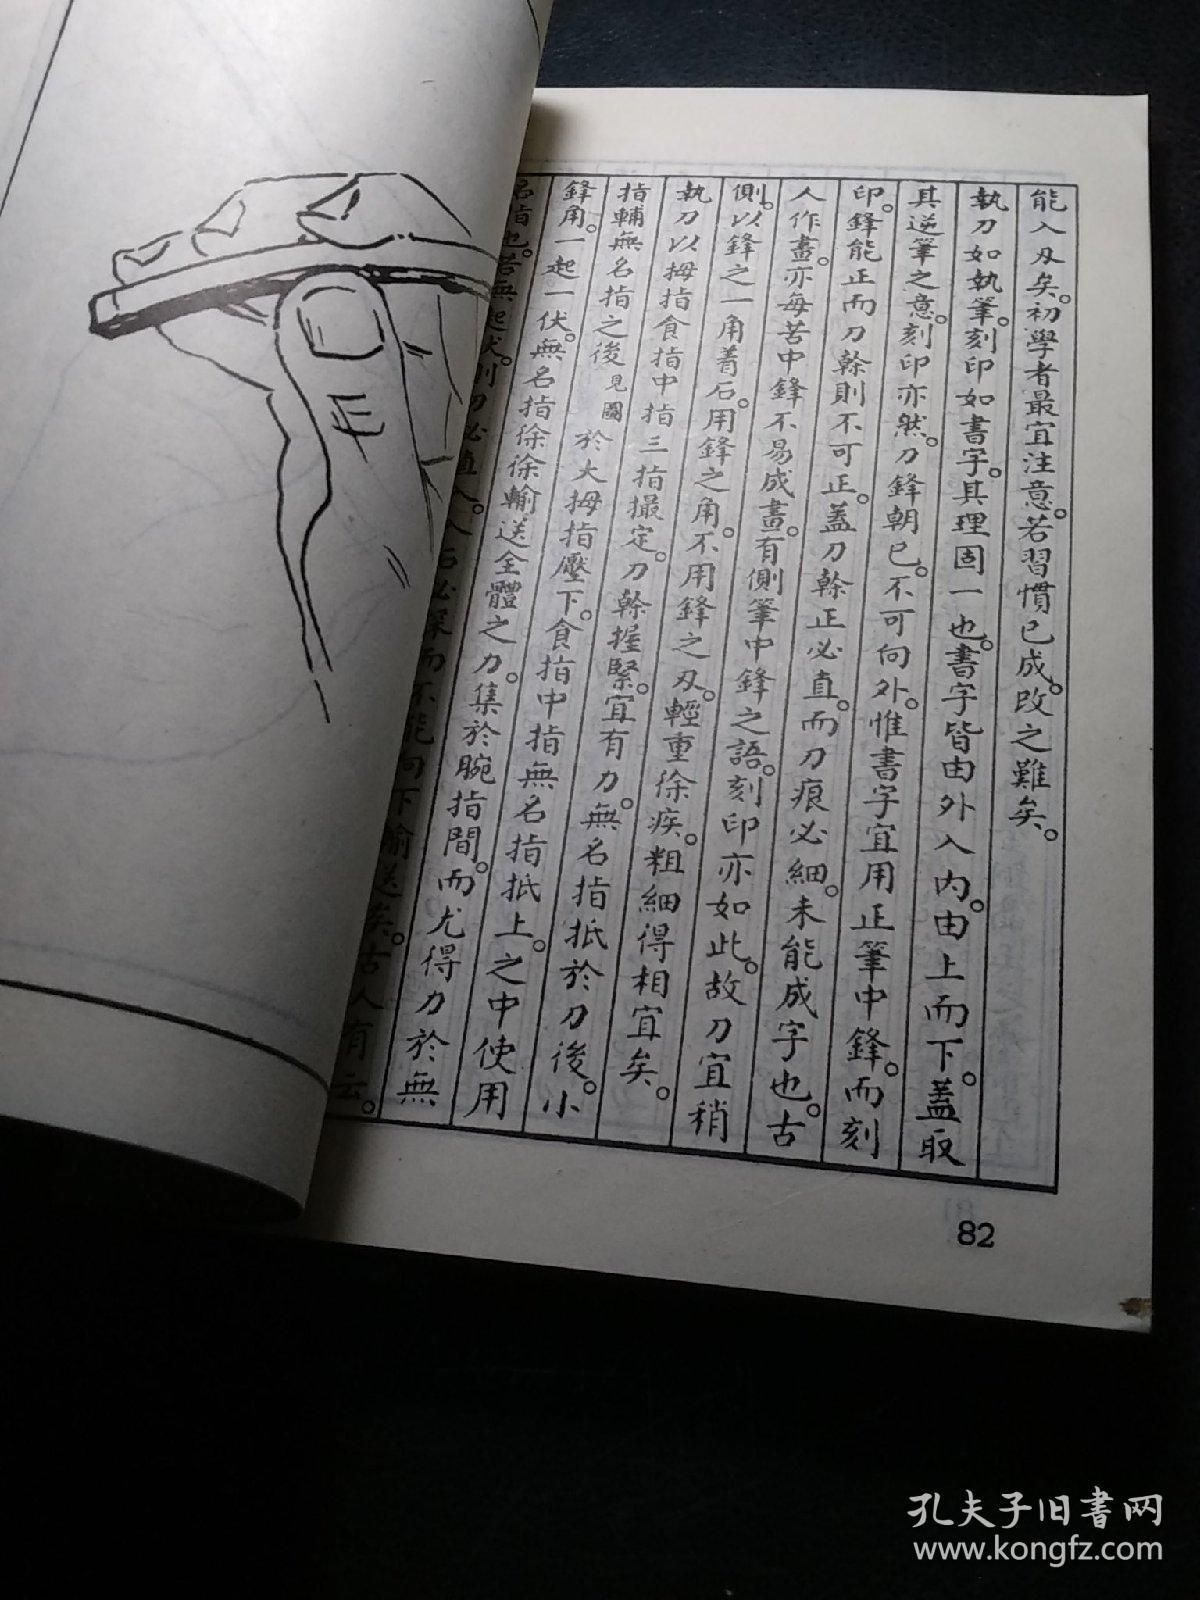 能入刄矣。初學者最宜注意。若習慣已成。改之難矣。
執刀如執筆。刻印如書字。其理固一也。書字皆由外入內。由上而下。蓋取
其逆筆之意。刻印亦然。刀鋒朝已。不可向外。惟書字宜用正筆中鋒。而刻
印。鋒能正而刀榦則不可正。蓋刀榦正必直。而刀痕必細。未能成字也。古
人作畫。亦每苦中鋒不易成畫。有側筆中鋒之語。刻印亦如此。故刀宜稍
側。以鋒之一角着石。用鋒之角。不用鋒之刄。輕重徐疾。粗細得相宜矣。
執刀以拇指食指中指三指撮定。刀榦握緊。宜有力。無名指抵於刀後。小
指輔無名指之後見圖於大拇指壓下。食指中指無名指抵上。之中使用
鋒角。一起一伏。無名指徐徐輸送全體之力。集於腕指間。而尤得力於無
名指也。若無起伏。則刀必直入。入石必深而不能向下輸送矣。古人有云。
82
孔夫子旧書网
www.kongfz.com